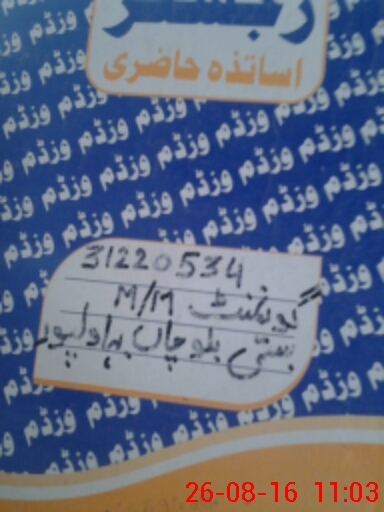 رجسٹر
اساتذہ حاضری
31220534
گورنمنٹ M/M
بستی بلوچاں بہاولپور
وزڈم وزڈم وزڈم وزڈم
26-08-16 11:03